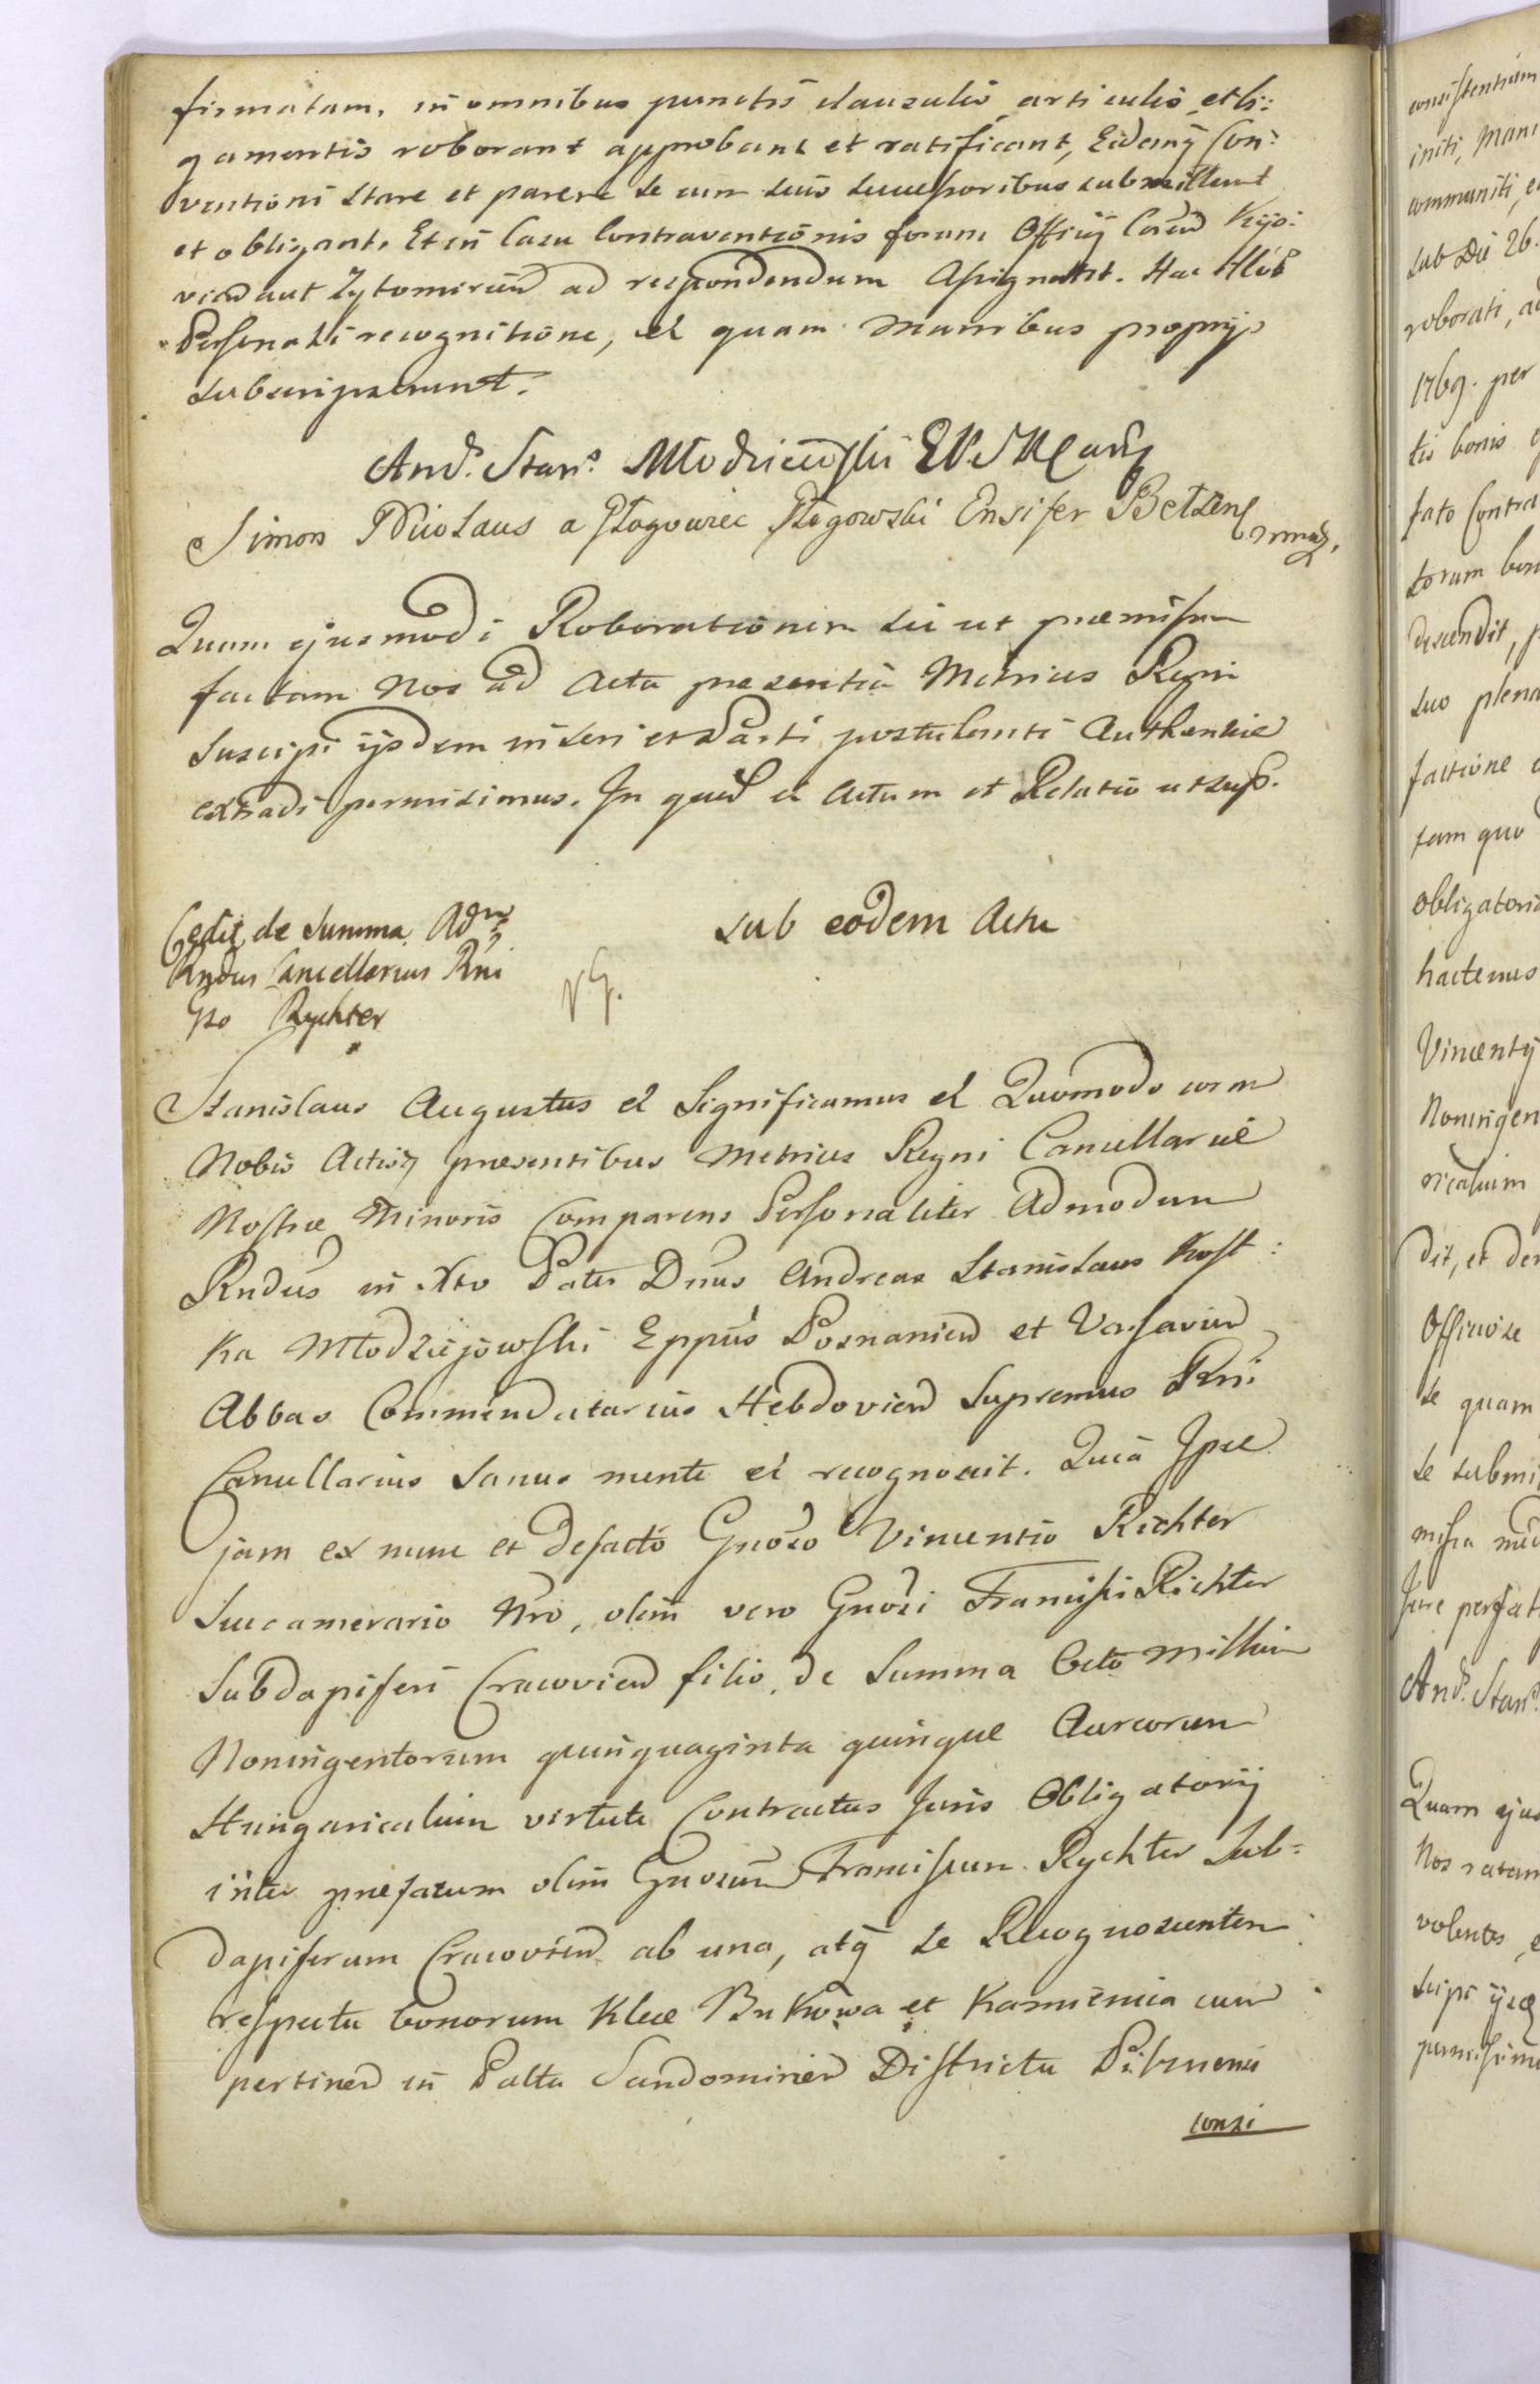 firmatam, in omnibus punctis clausulis articulis et li:
gamentis roborant approbant et ratificant, Eidemq̃ Con:
ventioni stare et parere se cum suis successoribus submittunt
et obligant. Et in Casu Contraventionis forum Officij Cas̃tn̄ Kijo:
vien̄ aut Zytomirien̄ ad respondendum assignant. Hac
Personali recognitione, et quam manibus proprijs
subscripserunt.
And. Stan. Młodzieiowski
Simon Nicolaus a Głogowiec Głogowski Ensifer Belzen mmp.
Quam ejusmodi Roborationem sic ut præmissum
factam Nos ad Acta præsentia Metrices Regni
suscipi ijsdem inseri et Parti postulanti Authentice
extradi permisimus. In quor̃ Actum et Relatio ut sup.
Cedit de Summa Adm̃
Rndus Cancellarius Rni
Gso Rychter
sub eodem Actu
Stanislaus Augustus et Significamus et Quomodo coram
Nobis Actisq præsentibus Metrices Regni Cancellariæ
Nostræ Minoris Comparens Personaliter Admodum
Rndus in Xto Pater Dnus Andreas Stanislaus Kost:
ka Młodziejowski Eppus Posnanien̄ et Varsavien̄
Abbas Commendatarius Hebdovien̄ Supremus Rni
Cancellarius sanus mente et recognovit. Quia Ipse
jam ex nunc et defacto Gnoso Vincentio Richter
Succamerario Nro, olim vero Gnosi Francisci Richter
Subdapiferi Cracovien̄ filio, de Summa Octo Millium
Noningentorum quinquaginta quinque Aureorum
Hungaricalium virtute Contractus Juris Obligatorij
inter præfatum olim Gnosum Franciscum Rychter Sub=
dapiferum Cracovien̄ ab una, atq̃ se Recognoscentem
respectu bonorum Klecie Bukowa et Kamienica cum
pertinen̄ in Palttu Sandomirien̄ Districtu Pilsnensi
consi
consistentium
initi, Manu
communiti, e
sub Die 26.
roborati, ad
1769. per
tis bonis
fato Contra
torum bon
descendit, p
suo plena
factione
tam quo
obligatori
hactenus
Vincentij
Noningen
ricalium
dit, et de
Officiose
se quam
se submi
missa med
Jure perfat
And. Stan.
Quam ejus
Nos ratam
volentes, e
scipi ijsq
permisimus